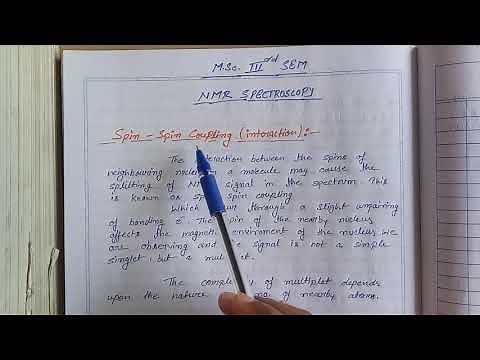 M.Sc. IIIrd SEM
NMR SPECTROSCOPY
Spin - Spin Coupling (interaction):-
The interaction between the spins of
neighbouring nuclei in a molecule may cause the
splitting of NMR signal in the spectrum. This
is known as spin spin coupling
Which occur through a slight unpairing
of bonding e⁻. The spin of the nearby nucleus
affects the magnetic enviroment of the nucleus we
are observing and the signal is not a simple
singlet, but a multiplet.
The complexity of multiplet depends
upon the nature of nearby atoms.